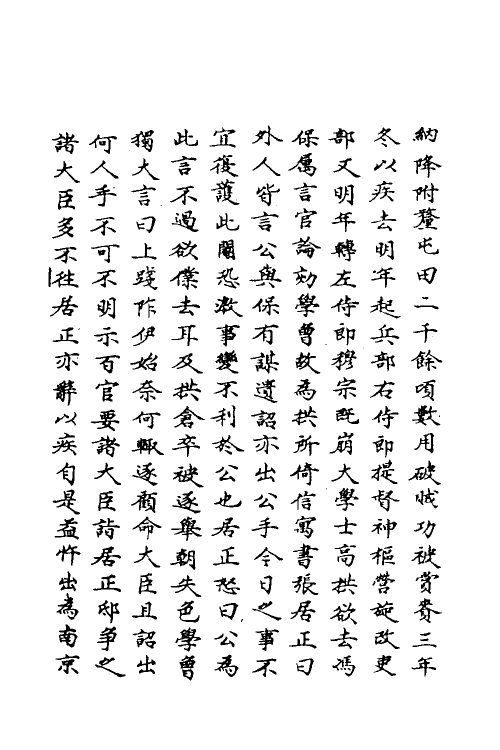 納降附釐屯田二千餘項數用破賊功被賞賚三年
冬以疾去明年起兵部右侍郎提督神樞營旋改吏
部又明年轉左侍郎穆宗既崩大學士高拱欲去馮
保屬言官論劾學曾故為拱所倚信寓書張居正曰
外人皆言公與保有謀遺詔亦出公手今日之事不
宜復護此閹恐激事變不利於公也居正怒曰公為
此言不過欲僕去耳及拱倉卒被逐舉朝失色學曾
獨大言曰上踐阼伊始奈何輒逐顧命大臣且詔出
何人手不可不明示百官要諸大臣詣居正邸爭之
諸大臣多不往居正亦辭以疾自是益忤出為南京